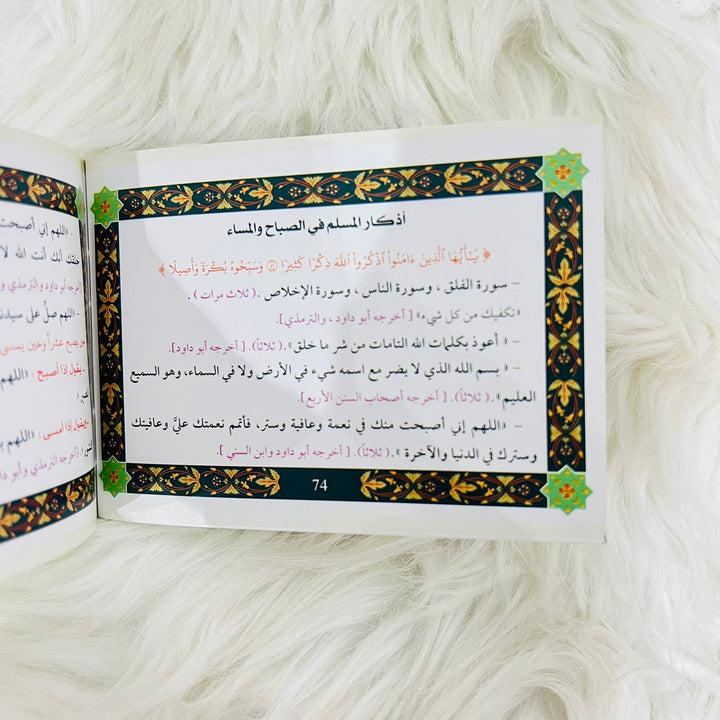 أذكار المسلم في الصباح والمساء
﴿ يَـٰٓأَيُّهَا ٱلَّذِينَ ءَامَنُوا۟ ٱذْكُرُوا۟ ٱللَّهَ ذِكْرًا كَثِيرًا ۝ وَسَبِّحُوهُ بُكْرَةً وَأَصِيلًا ﴾
– سورة الفلق ، وسورة الناس ، وسورة الإخلاص .( ثلاث مرات ) .
«تكفيك من كل شيء» [ أخرجه أبو داود ، والترمذي].
– « أعوذ بكلمات الله التامات من شر ما خلق».( ثلاثاً). [ أخرجه أبو داود].
– « بسم الله الذي لا يضر مع اسمه شيء في الأرض ولا في السماء، وهو السميع
العليم».( ثلاثاً). [ أخرجه أصحاب السنن الأربع].
– «اللهم إني أصبحت منك في نعمة وعافية وستر، فأتمم نعمتك عليَّ وعافيتك
وسترك في الدنيا والآخرة ».( ثلاثاً). [ أخرجه أبو داود وابن السني ].
74
– «اللهم إني أصبحت
خلقك أنك أنت الله لا
أخرجه أبو داود والترمذي
– اللهم صلِّ على سيدنا
حين يصبح عشراً وحين يمسي
– يقول إذا أصبح : «اللهم
– ويقول إذا أمسى : «اللهم
أخرجه الترمذي وأبو